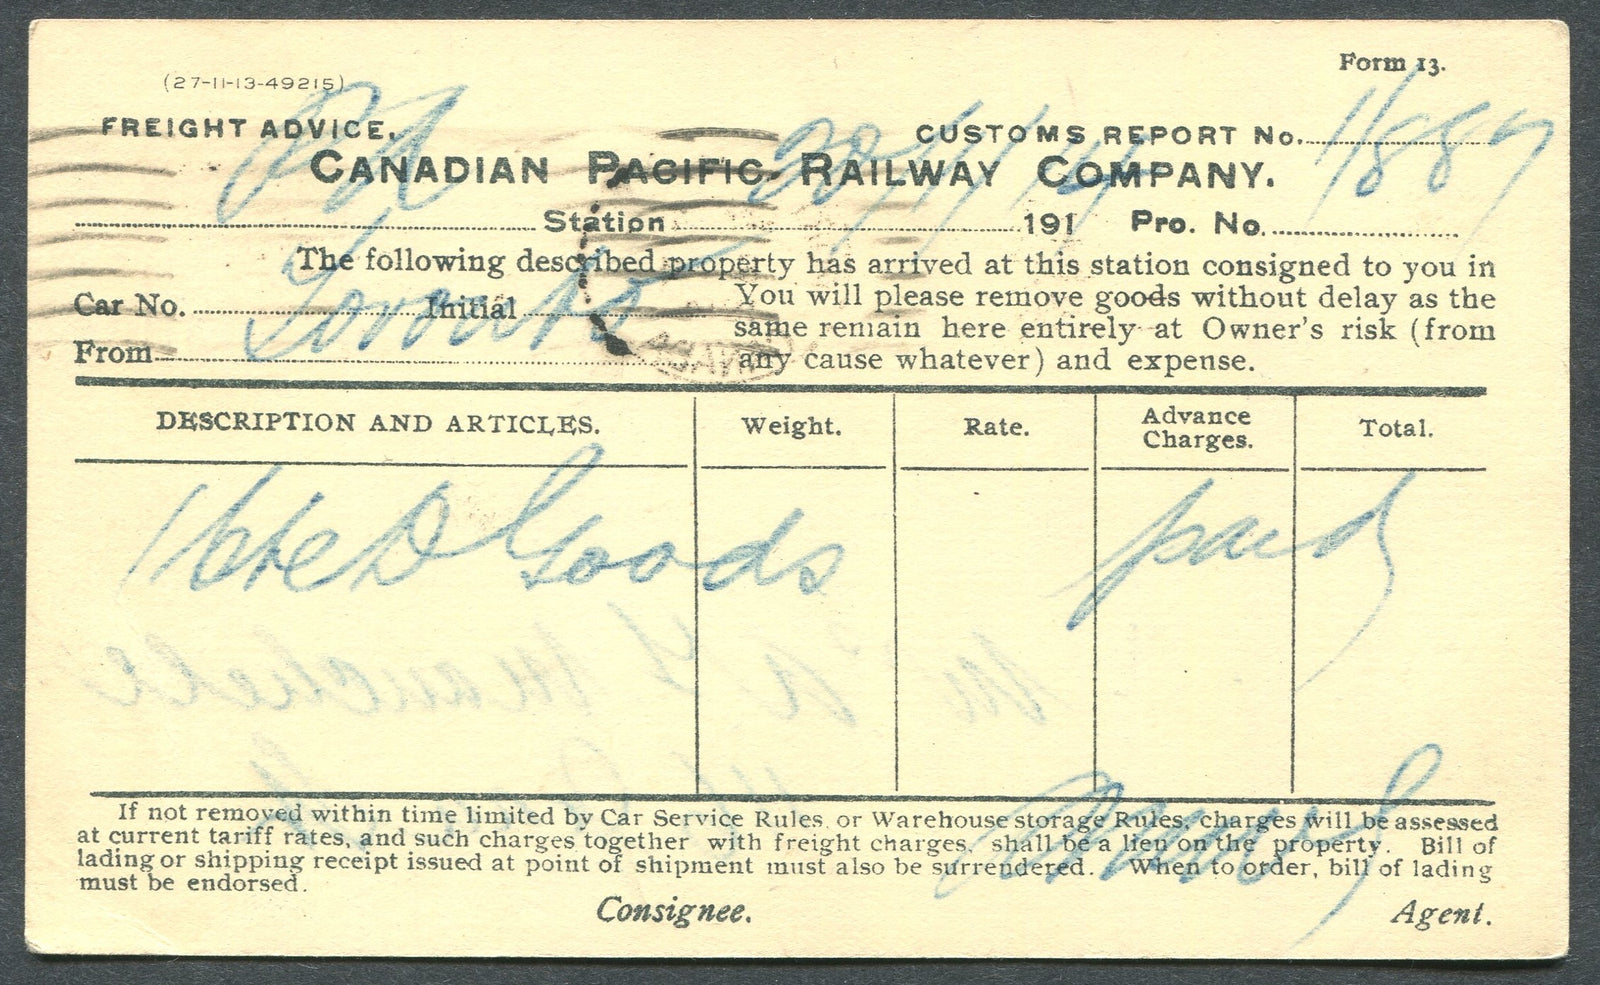 Form 13.
(27-11-13-49215)
FREIGHT ADVICE.
CUSTOMS REPORT No.
CANADIAN PACIFIC RAILWAY COMPANY.
11887
Station 191 Pro. No.
The following described property has arrived at this station consigned to you in
Car No. Initial
You will please remove goods without delay as the
same remain here entirely at Owner's risk (from
Toronto
From
any cause whatever) and expense.
DESCRIPTION AND ARTICLES. Weight. Rate. Advance Charges. Total.
Goods paid
If not removed within time limited by Car Service Rules, or Warehouse storage Rules, charges will be assessed
at current tariff rates, and such charges together with freight charges, shall be a lien on the property. Bill of
lading or shipping receipt issued at point of shipment must also be surrendered. When to order, bill of lading
must be endorsed.
Consignee. Agent.